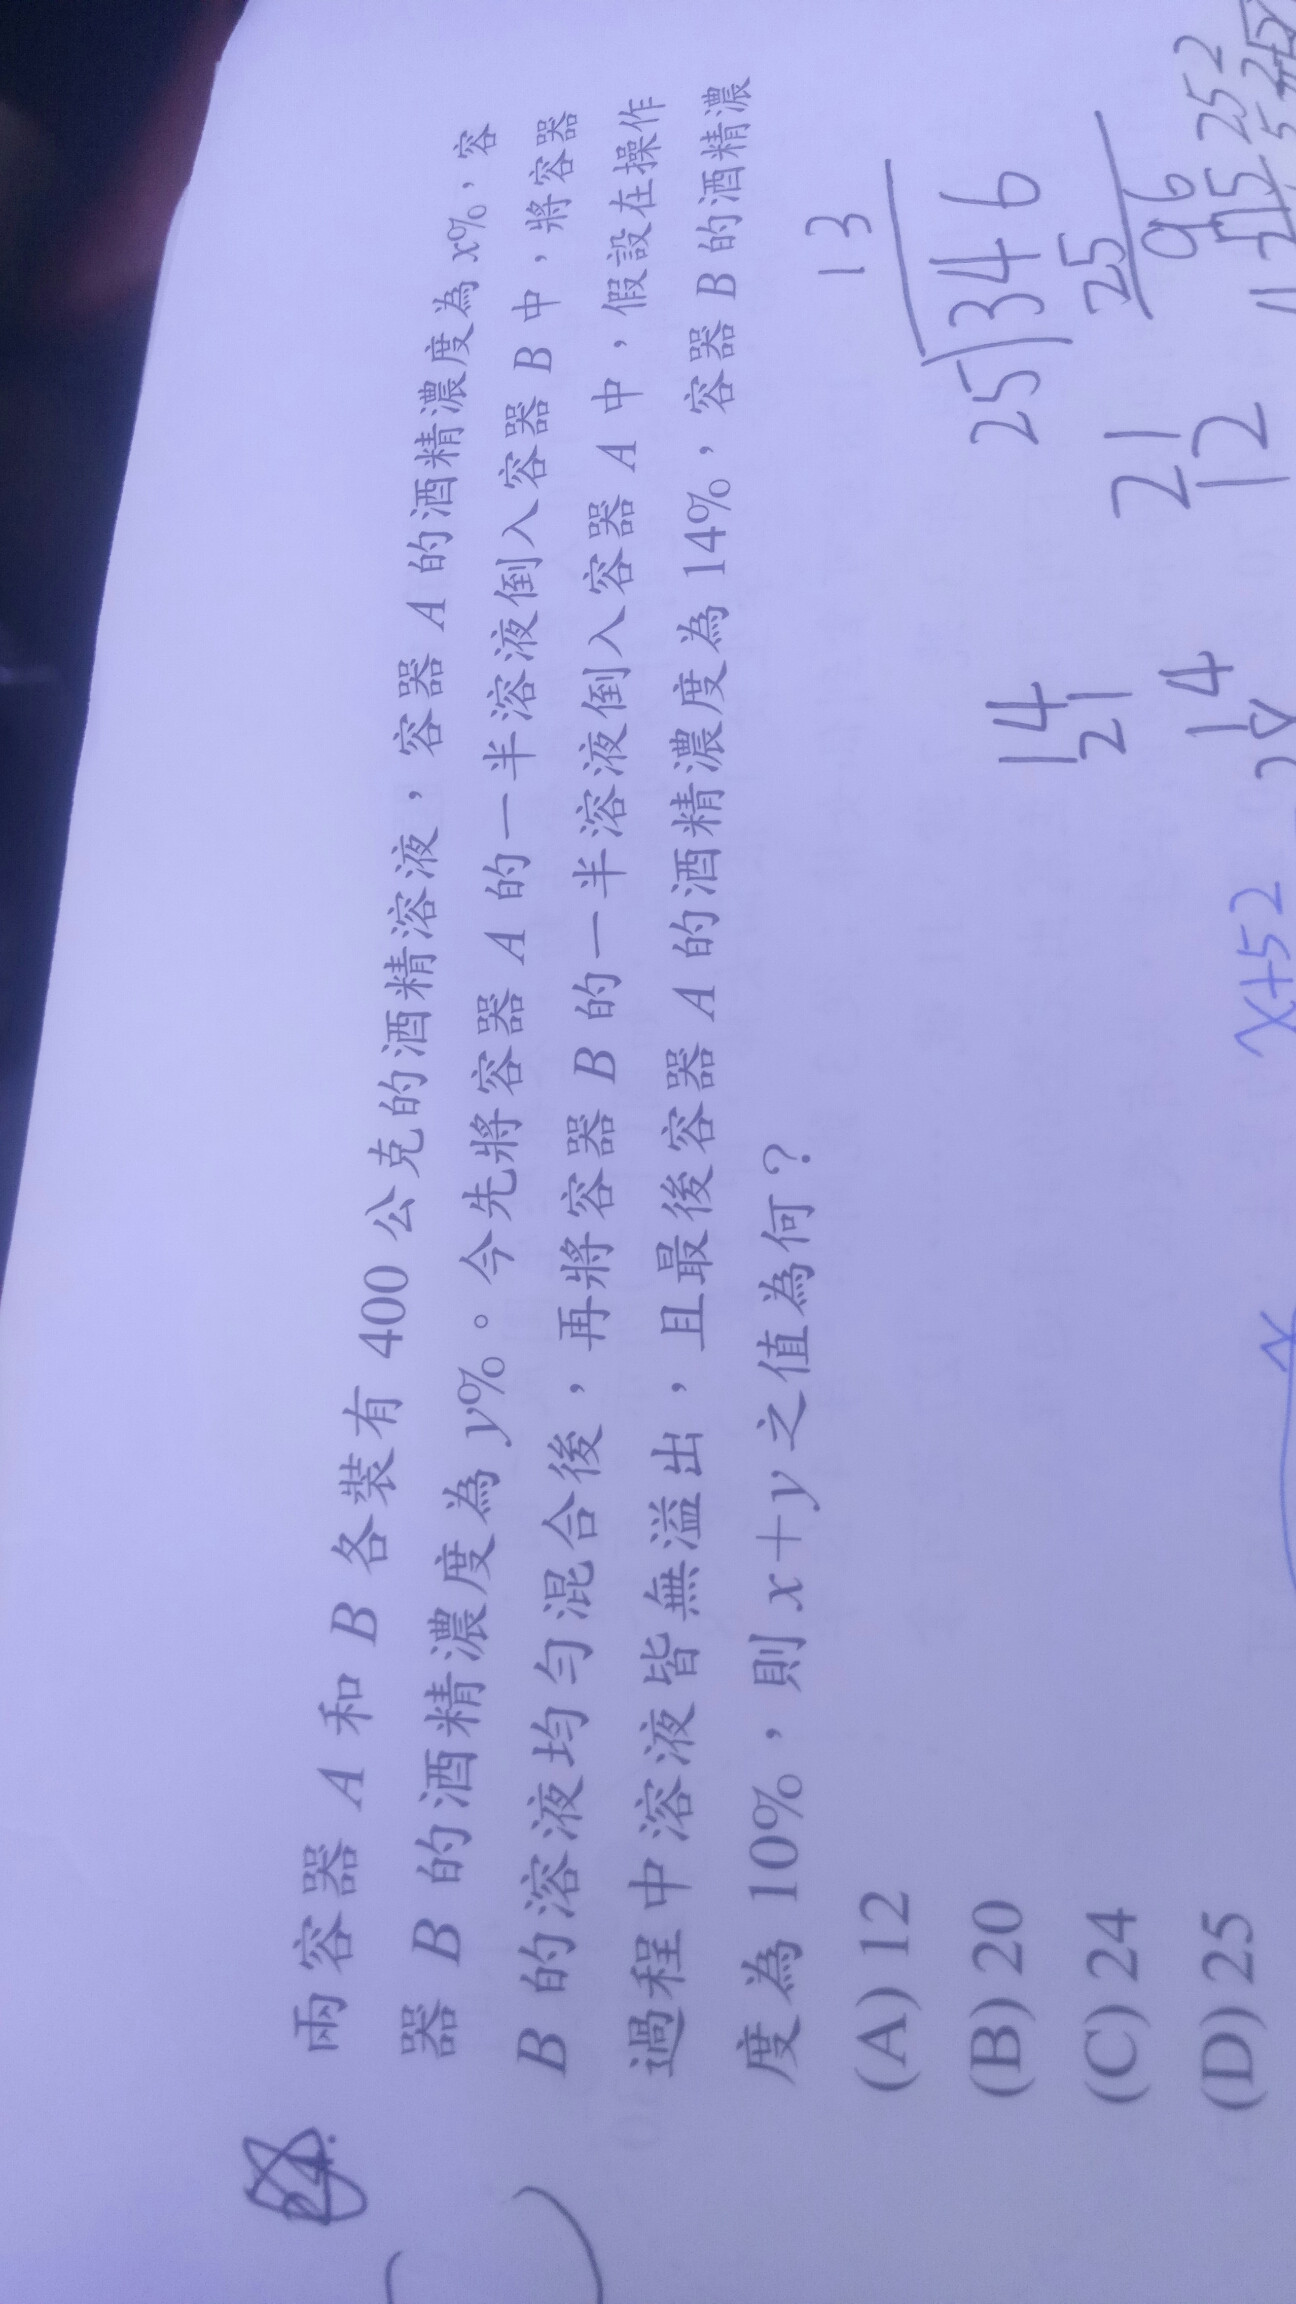 24.
兩容器 A 和 B 各裝有 400 公克的酒精溶液，容器 A 的酒精濃度為 x%，容
器 B 的酒精濃度為 y%。今先將容器 A 的一半溶液倒入容器 B 中，將容器
B 的溶液均勻混合後，再將容器 B 的一半溶液倒入容器 A 中，假設在操作
過程中溶液皆無溢出，且最後容器 A 的酒精濃度為 14%，容器 B 的酒精濃
度為 10%，則 x+y 之值為何？
(A) 12
(B) 20
(C) 24
(D) 25
13
25 346
25
96
14
21
21
12
14
x+52
252